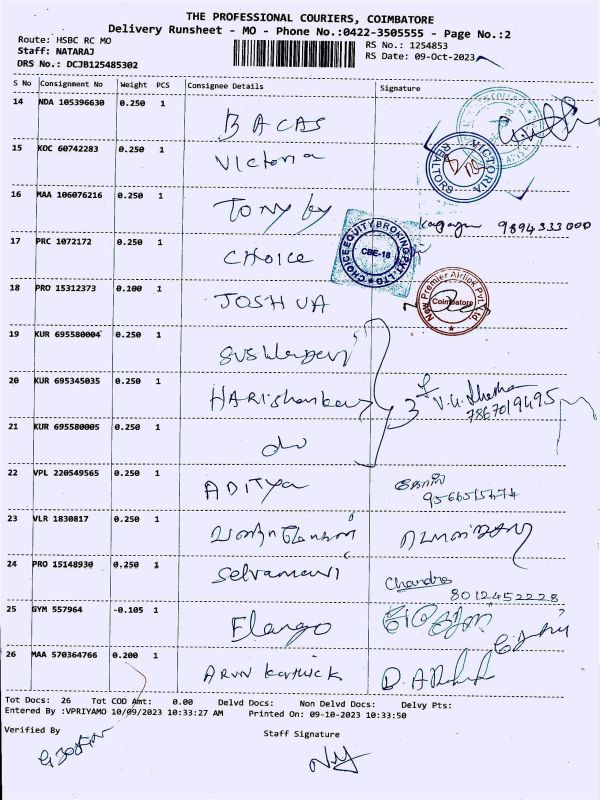 THE PROFESSIONAL COURIERS, COIMBATORE
Delivery Runsheet - MO - Phone No.:0422-3505555 - Page No.:2
Route: HSBC RC MO
RS No.: 1254853
Staff: NATARAJ
RS Date: 09-Oct-2023
DRS No.: DCJB125485302
S No Consignment No Weight PCS Consignee Details Signature
14 NDA 105396630 0.250 1 BACAS
15 KOC 60742283 0.250 1 Victoria
VICTORIA REALTORS
16 MAA 106076216 0.250 1 Tony 9894333000
17 PRC 1072172 0.250 1 CHOICE
CHOICE EQUITY BROKING PVT. LTD
CBE-18
18 PRO 15312373 0.100 1 JOSHUA
New Premier Airlink Pvt Ltd.
Coimbatore
19 KUR 695580004 0.250 1
20 KUR 695345035 0.250 1 HARishankar 3
7867019495
21 KUR 695580005 0.250 1 do
22 VPL 220549565 0.250 1 ADITya
9566515474
23 VLR 1830817 0.250 1
24 PRO 15148930 0.250 1 Selvamani Chandra
8012452228
25 GYM 557964 -0.105 1 Elango
26 MAA 570364766 0.200 1 ARUN karthick
Tot Docs: 26 Tot COD Amt: 0.00 Delvd Docs: Non Delvd Docs: Delvy Pts:
Entered By :VPRIYAMO 10/09/2023 10:33:27 AM Printed On: 09-10-2023 10:33:50
Verified By Staff Signature